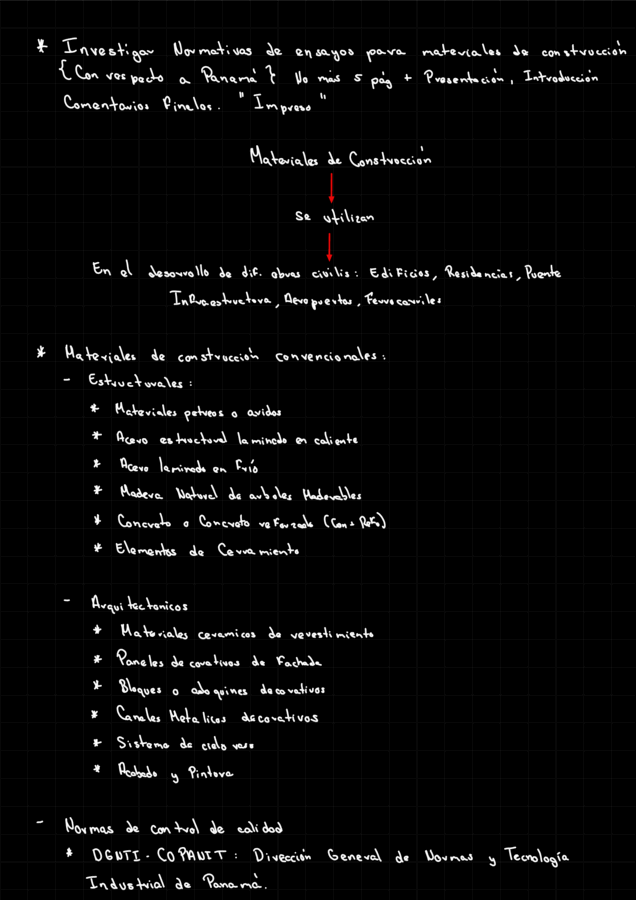 * Investigar Normativas de ensayos para materiales de construcción
{Con respecto a Panamá} No más 5 pág + Presentación, Introducción
Comentarios Finales. "Impreso"
Materiales de Construcción
se utilizan
En el desarrollo de dif. obras civilis: Edificios, Residencias, Puente
Infraestructura, Aeropuertos, Ferrocarriles
* Materiales de construcción convencionales:
- Estructurales:
* Materiales petreos o aridos
* Acero estructural laminado en caliente
* Acero laminado en Frío
* Madera Natural de arboles Maderables
* Concreto o Concreto reforzado (Con + Ref.)
* Elementos de Cerramiento
- Arquitectonicos
* Materiales ceramicos de revestimiento
* Paneles decorativos de Fachada
* Bloques o adoquines decorativos
* Canales Metalicos decorativos
* Sistema de cielo raso
* Acabado y Pintura
- Normas de control de calidad
* DGNTI - COPANIT: Dirección General de Normas y Tecnología
Industrial de Panamá.